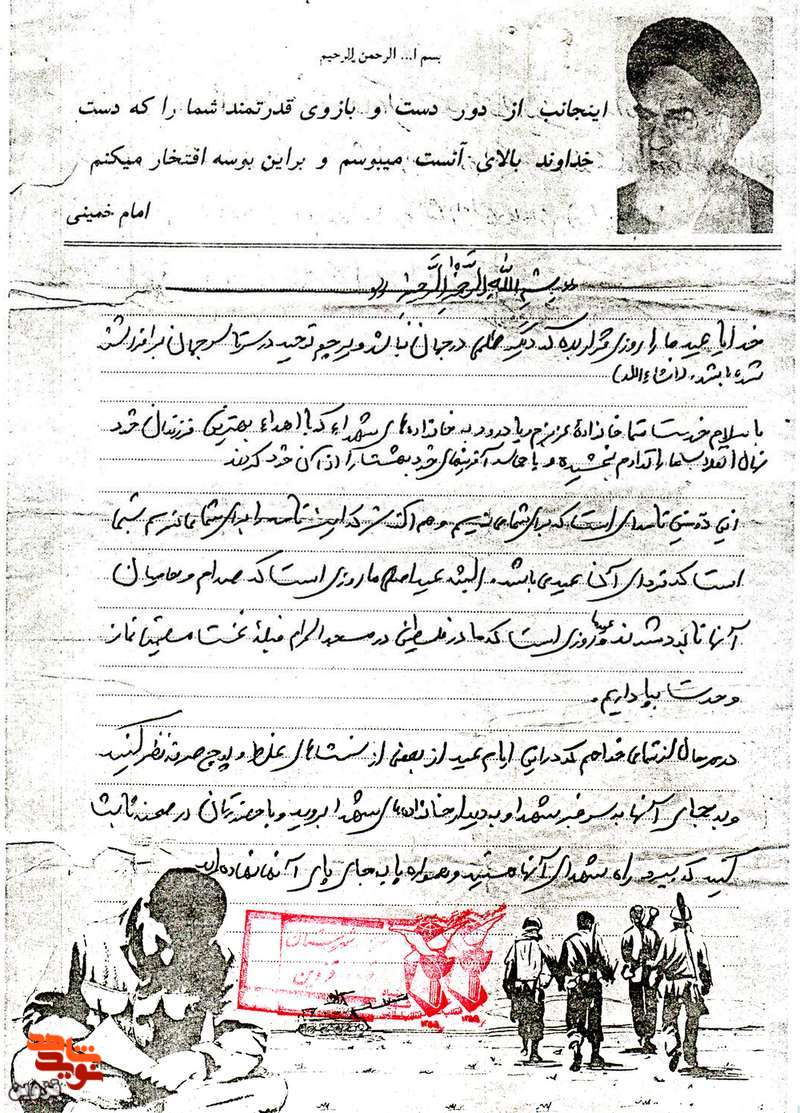 بسم ا... الرحمن الرحیم
اینجانب از دور دست و بازوی قدرتمند شما را که دست
خداوند بالای آنست میبوسم و براین بوسه افتخار میکنم
امام خمینی
بسم الله الرحمن الرحیم
خدایا عید ما را روزی قرار بده که دیگر ظلمی در جهان نباشد و پرچم توحید در سرتاسر جهان برافراشته
شده باشد. (انشاءالله)
با سلام خدمت شما خانوادهٔ عزیزم و با درود به خانواده‌های شهداء که با اهداء بهترین فرزندان خود
نهال انقلاب را تداوم بخشیده و با حماسه آفرینیهای خود بهشت را از آن خود کردند
این دومین نامه‌ای است که برای شما می‌نویسم و هم اکنون که این نامه را برای شما می‌نویسم شبی
است که فردای آن عید می‌باشد. البته عید اصلی ما روزی است که صدام و حامیان
آنها نابود شدند و عید ما روزی است که ما در فلسطین در مسجد الحرام قبلهٔ نخست مسلمین نماز
وحدت بپا داریم.
در هر حال از شما می‌خواهم که در این ایام عید از بعضی از سنت‌های غلط و پوچ صرف نظر کنید
و به جای آنها به سر قبر شهدا و به دیدار خانواده‌های شهدا بروید و با حضورتان در صحنه ثابت
کنید که پیرو راه شهدای آنها هستید و همواره پا به جای پای آنها نهاده‌اید
شهرستان
قزوین
نوید شاهد
قزوین